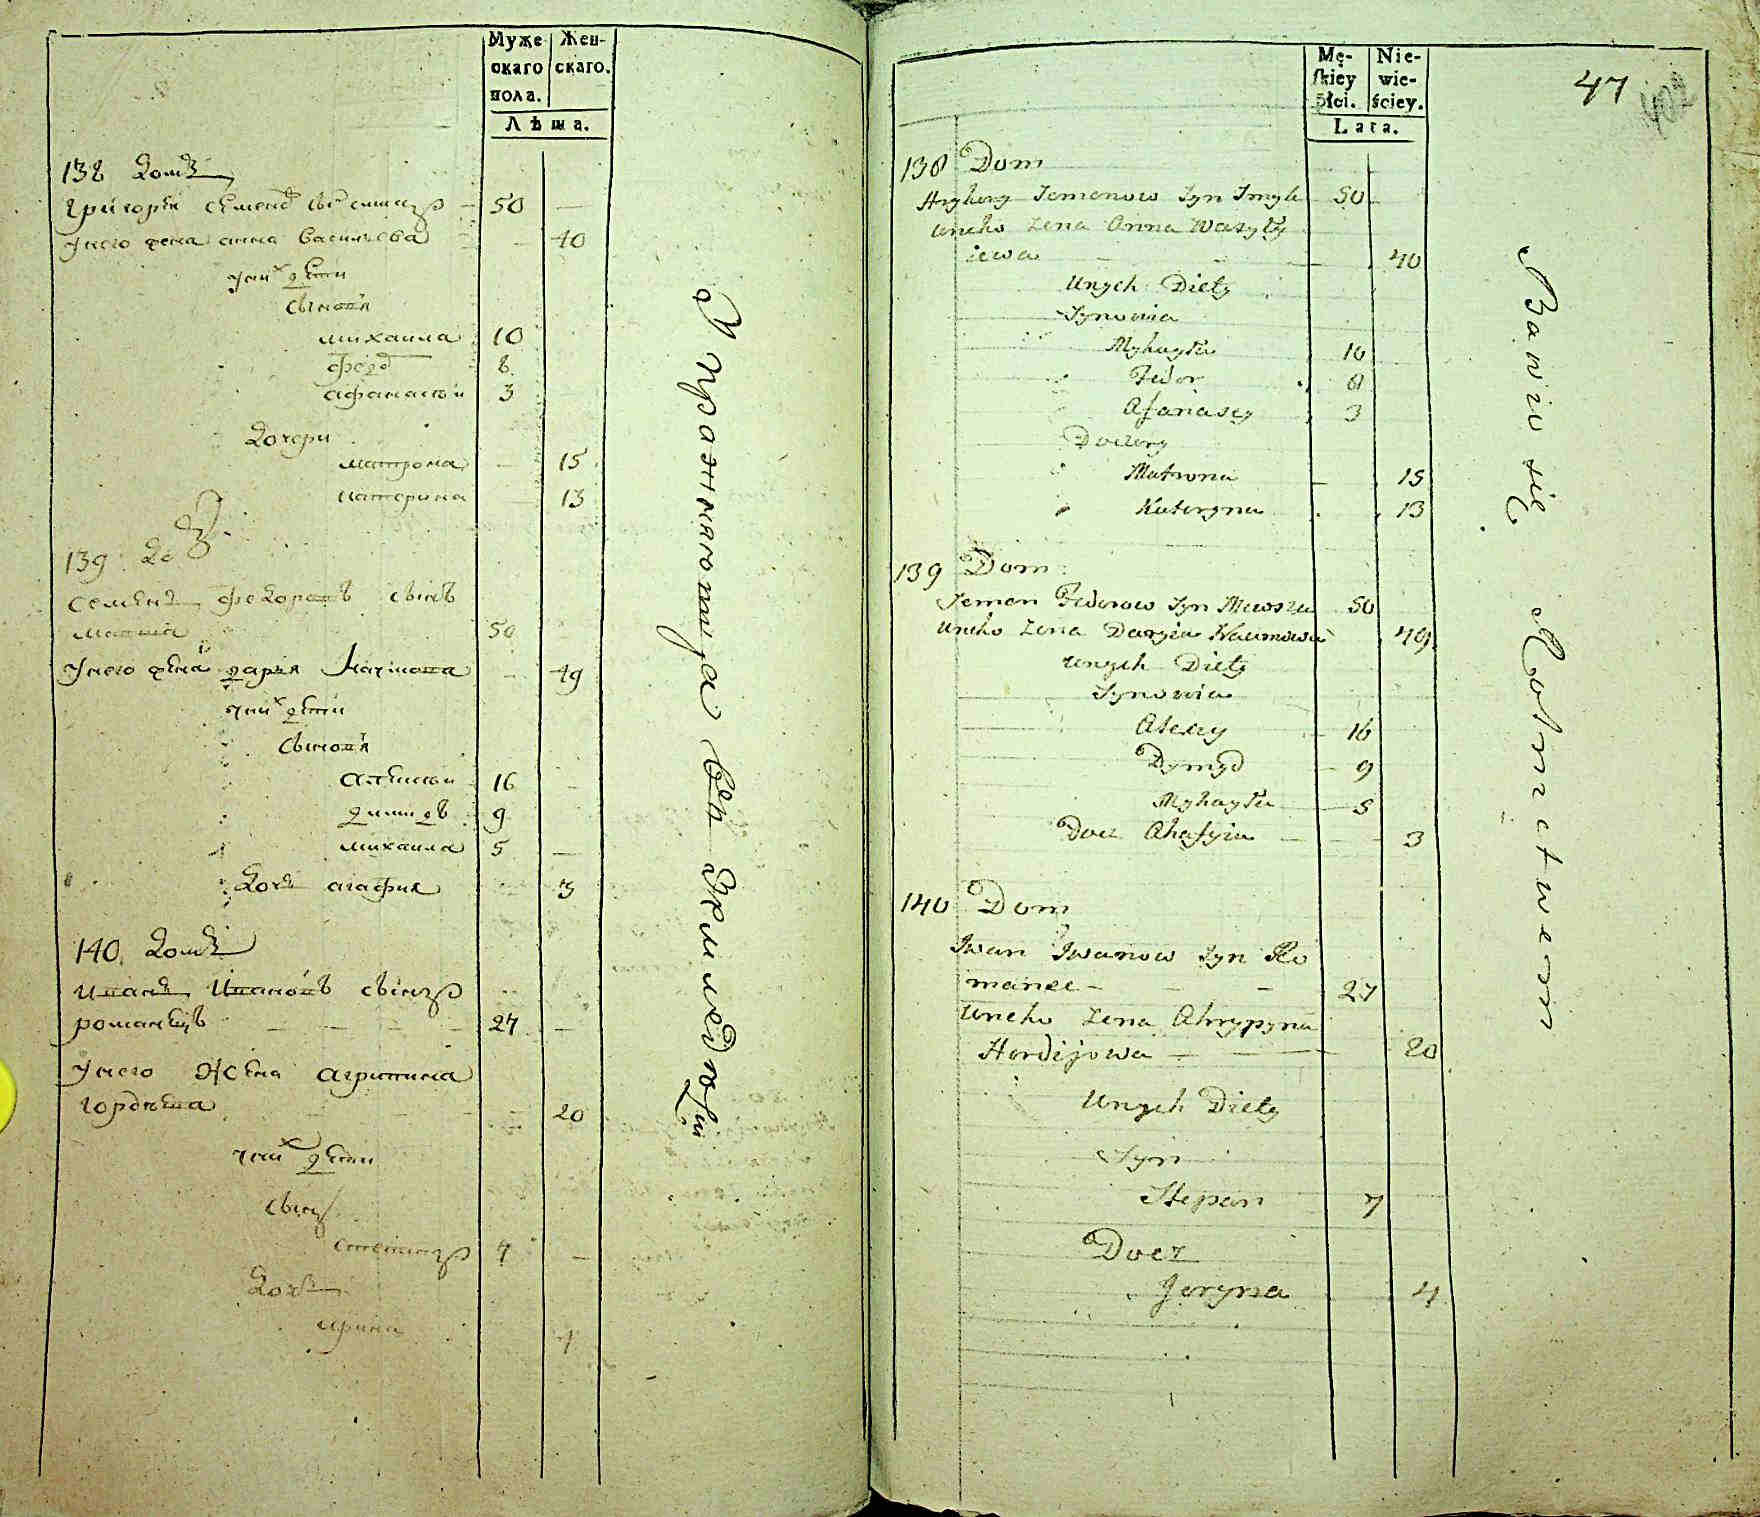 Муже
скаго
пола.
Жен-
скаго.
Лѣта.
138 Домъ
Григорій Семеновъ сынъ Смыкъ 50
Унего жена анна васильева 40
Унихъ дѣти
Сыновя
михаила 10
Федоръ 8
афанасіи 3
Дочери
матрона 15
катерина 13
139 До
Семенъ Федоровъ сынъ
50
Унего жена дарія Наумова 49
Унихъ дѣти
Сыновя
алексѣи 16
димидъ 9
михаила 5
Дочь агафия 3
140. Домъ
Иванъ Ивановъ сынъ
романецъ 27
Унего жена агрипина
гордѣева 20
Унихъ дѣти
Сынъ
степанъ 7
Дочь
ирина 4
Упражняютца въ Земледелїи
Mę-
skiey
płci.
Nie-
wie-
ściey.
Lata.
47
402
138 Dom
Hryhory Semenow Syn Smyk 50
Uneho Zena Anna Wasyły
iewa 40
Unych Diety
Synowia
Myhayła 10
Fedor 8
Afanasey 3
Doczery
Matrona 15
Kateryna 13
139 Dom
Semen Fedorow Syn 50
Uneho Zena Daryia Naumowa 49
Unych Diety
Synowia
Alexey 16
Dymyd 9
Myhayła 5
Docz Ahafyia 3
140 Dom
Iwan Iwanow Syn Ro
manec 27
Uneho Zena Ahrypyna
Hordijowa 20
Unych Diety
Syn
Stepan 7
Docz
Jeryna 4
Bawio się Rolnictwem